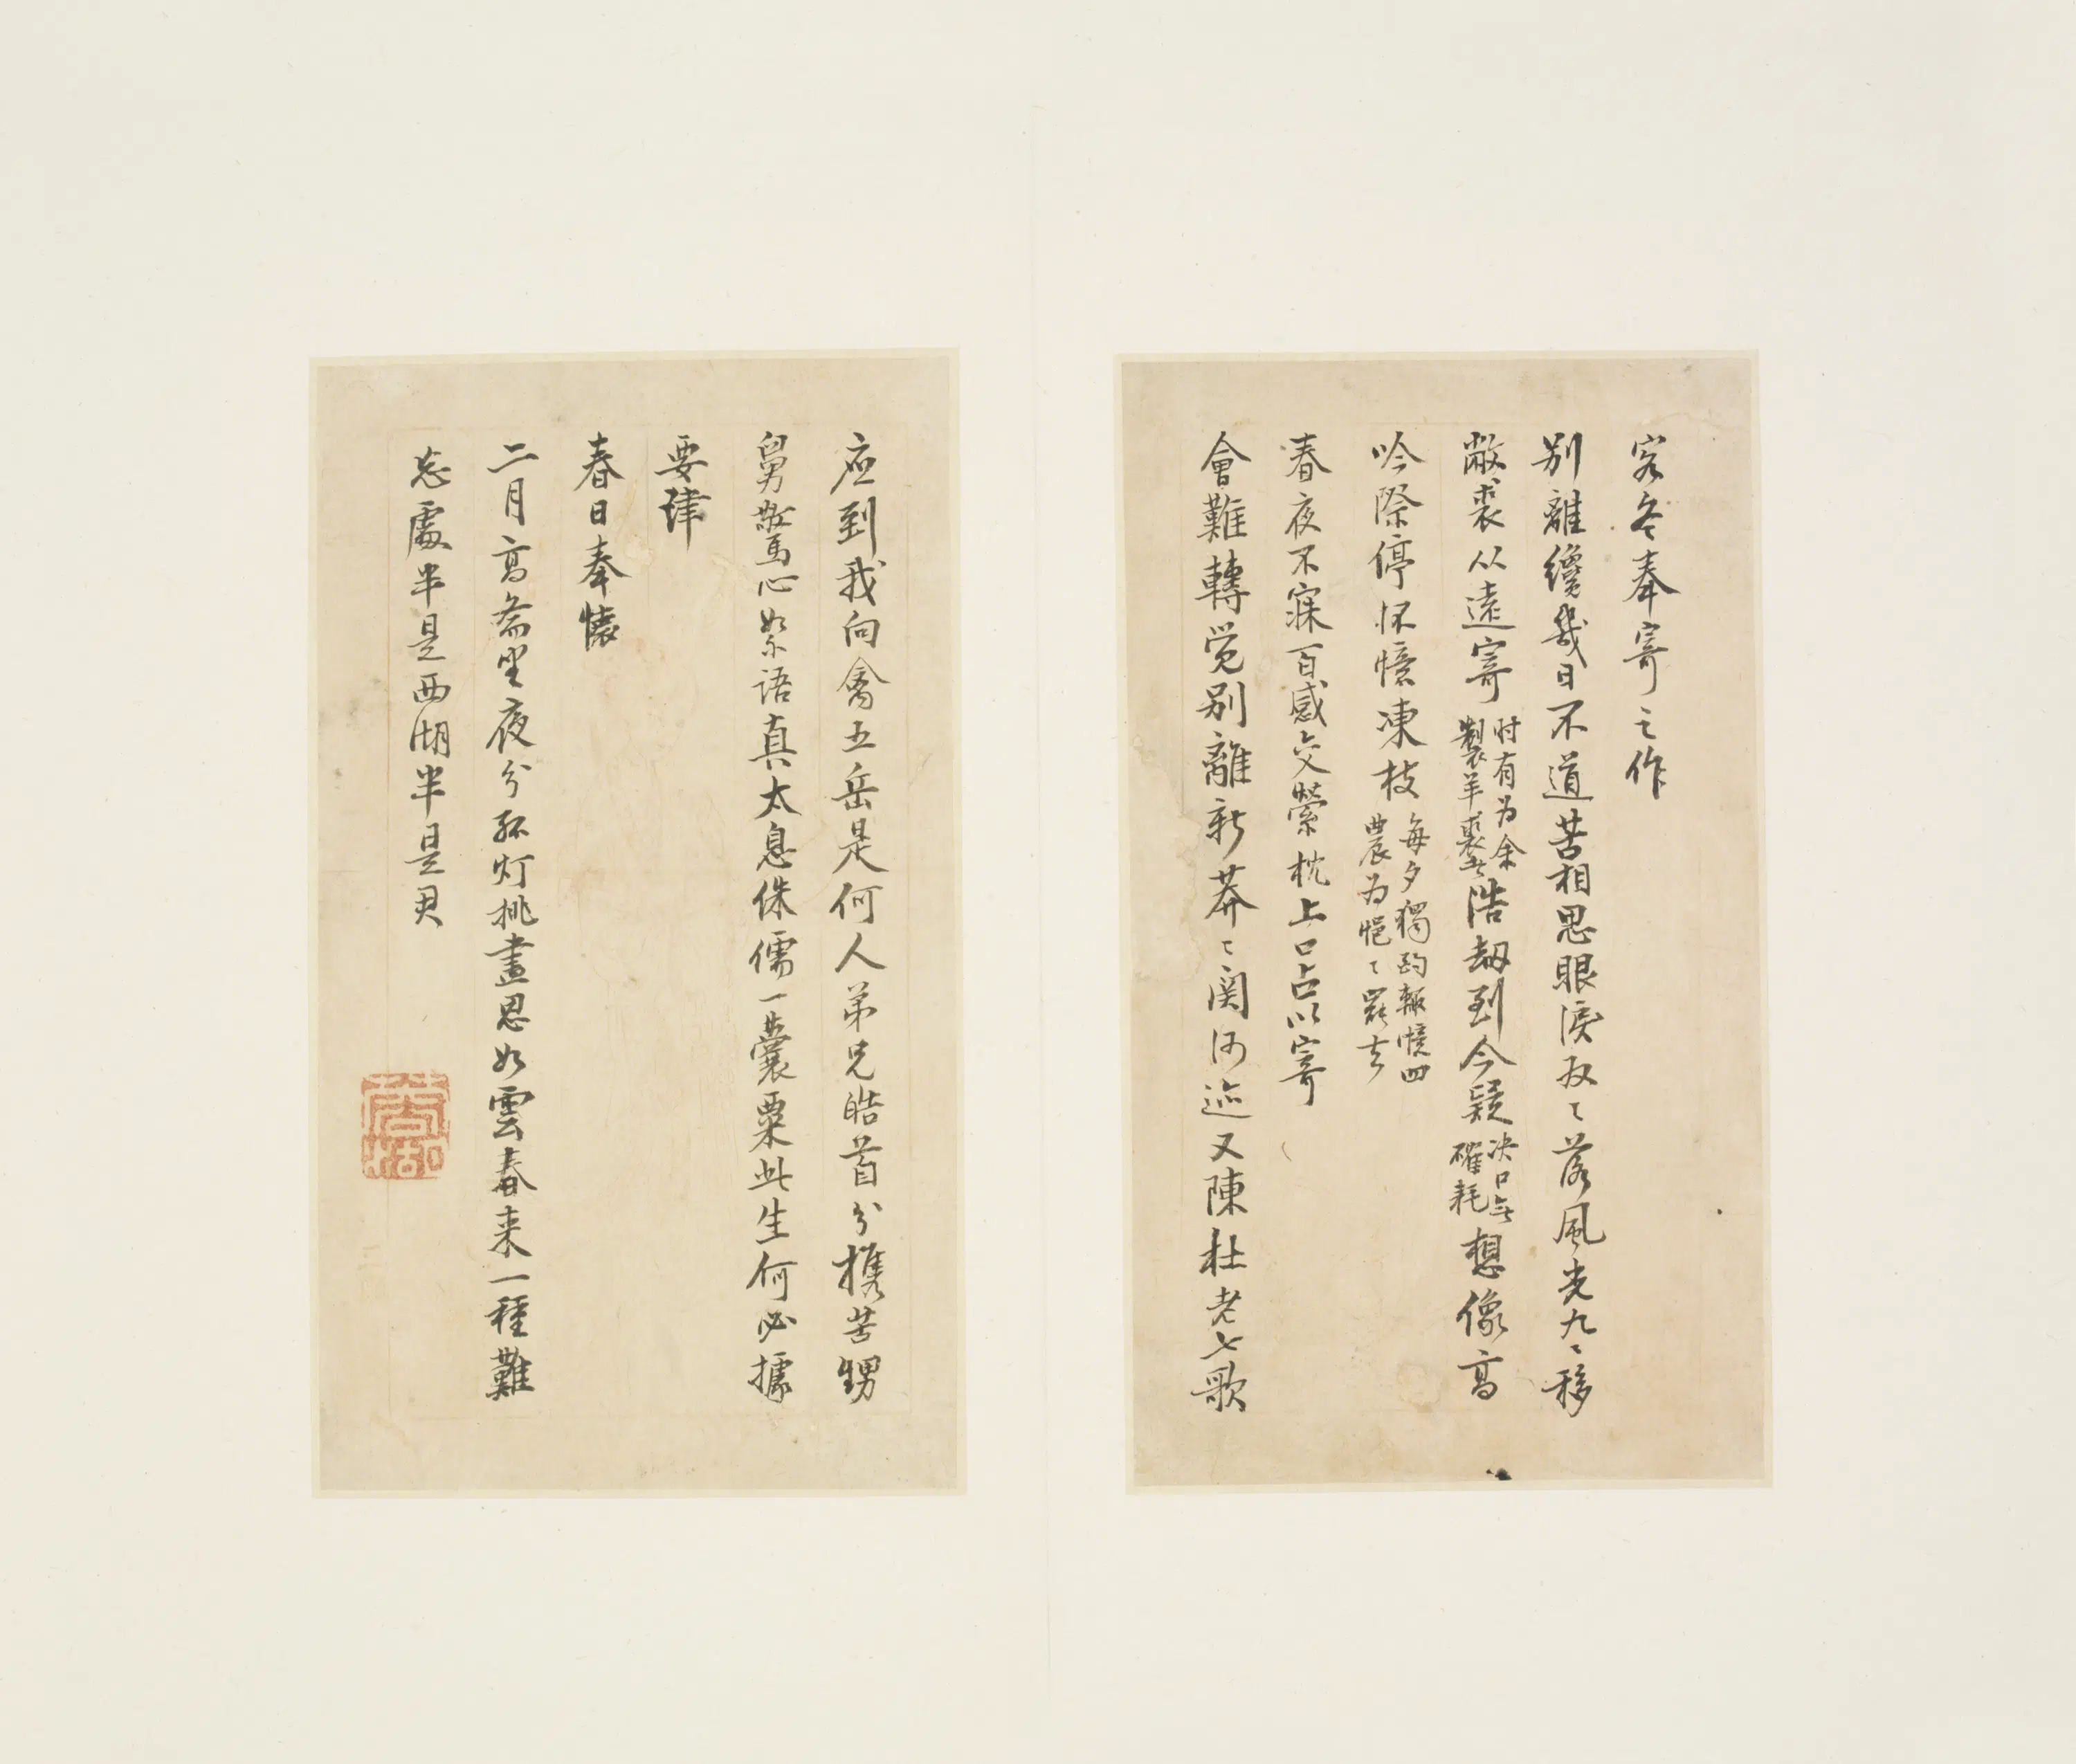 客冬奉寄之作
别離纔幾日不道苦相思眼淚双〻落風光九〻移
敝裘从遠寄时有为余製羊裘者浩劫到今疑决口无確耗想像高
吟際停杯憶凍枝每夕獨酌輒憶四農为悒〻罷去
春夜不寐百感交縈枕上口占以寄
會難轉觉别離新莽〻関河迹又陳杜老七歌
应到我向禽五岳是何人弟兄皓首分携苦甥
舅驚心絮語真太息侏儒一囊粟此生何必據
要津
春日奉懷
二月高斋坐夜分孤灯挑盡思如雲春来一種難
忘處半是西湖半是君